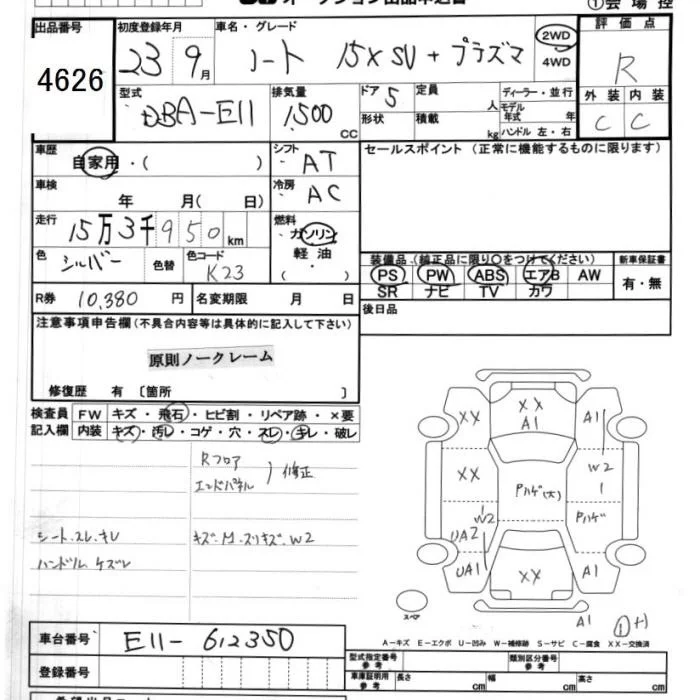 ①会場控
出品番号
4626
初度登録年月
23 9月
車名・グレード
ノート 15X SV + プラズマ
2WD
4WD
評価点
R
外装 内装
C C
型式
DBA-E11
排気量
1,500 CC
ドア 5
形状
定員 人
積載 kg
ディーラー・並行
モデル年式 年
ハンドル 左・右
車歴
自家用・( )
シフト
AT
車検
年 月( 日)
冷房
AC
走行
15万3千950km
燃料
ガソリン
軽油
( ・ )
色
シルバー
色替
色コード
K23
R券 10,380 円
名変期限 月 日
セールスポイント (正常に機能するものに限ります)
装備品 (純正品に限り○をつけてください)
PS PW ABS エアB AW
SR ナビ TV カワ
新車保証書
有・無
後日品
注意事項申告欄 (不具合内容等は具体的に記入して下さい)
原則ノークレーム
修復歴 有 〔箇所 〕
検査員記入欄
FW キズ・飛石・ヒビ割・リペア跡・×要
内装 キズ・汚レ・コゲ・穴・スレ・キレ・破レ
Rフロア
エンドパネル
修正
シート.スレ.キレ
ハンドル ケズレ
キズ.凹.スリキズ.W2
XX
XX
A1
A1
XX
W2
Pハゲ(大)
Pハゲ
W2
UA2
UA1
XX
A1
A1
スペア
A-キズ E-エクボ U-凹み W-補修跡 S-サビ C-腐食 XX-交換済
車台番号 E11-612350
登録番号
型式指定番号 参考
類別区分番号 参考
車庫証明用 参考
長さ cm
幅 cm
高さ cm